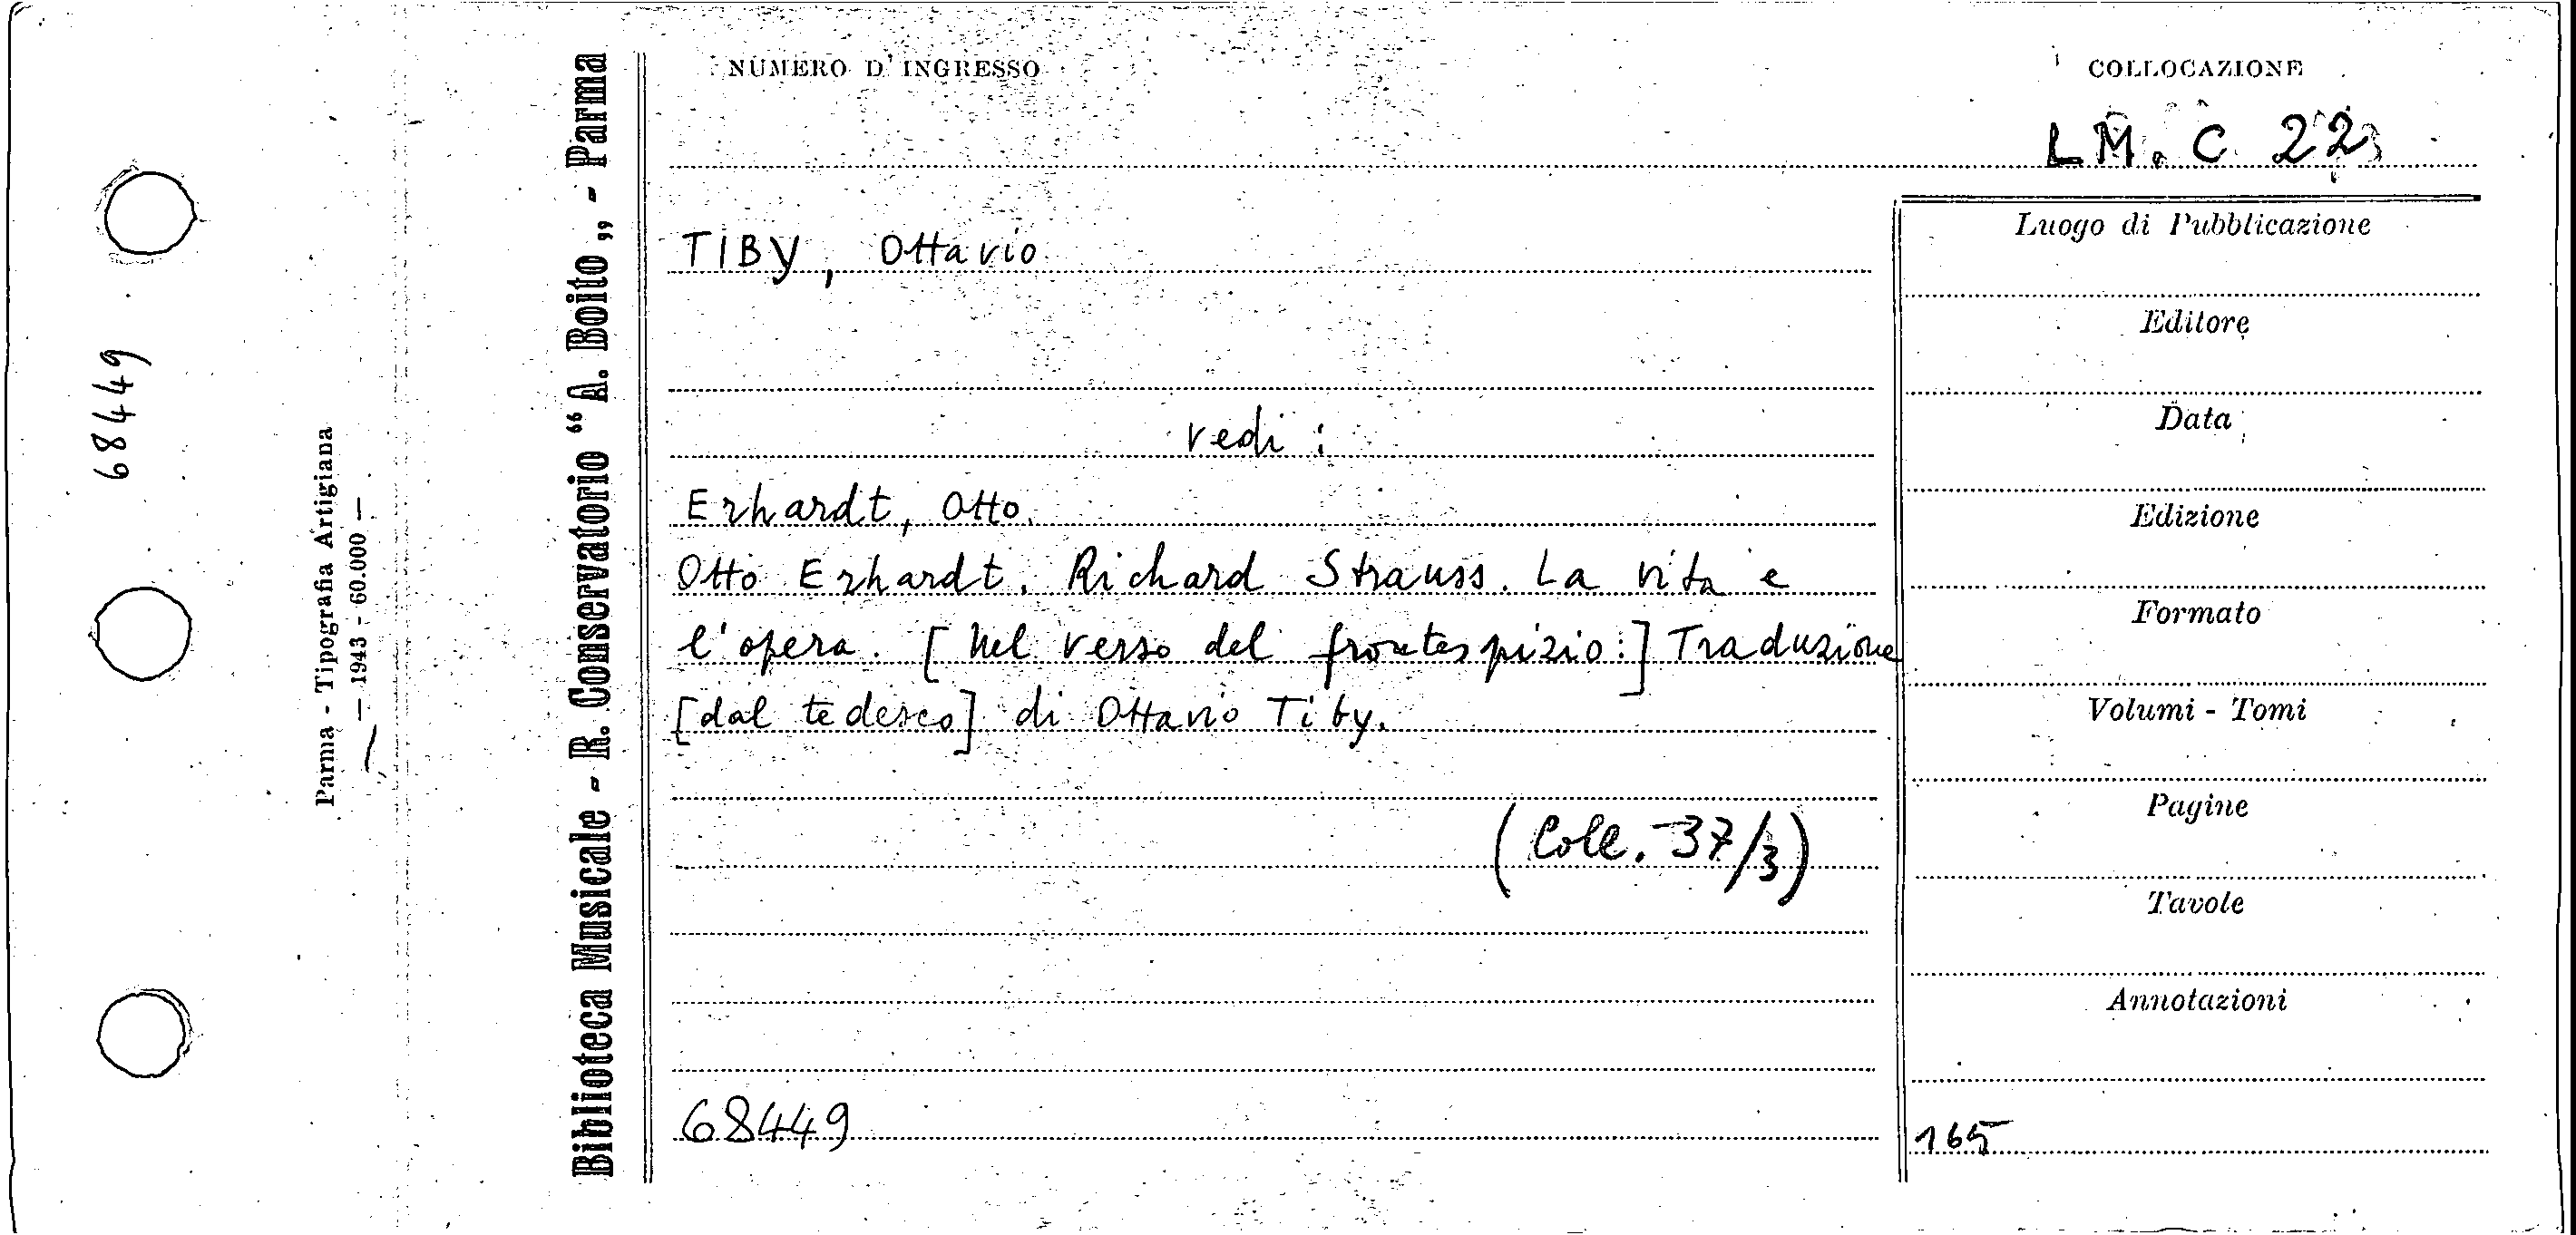 NUMERO D'INGRESSO
COLLOCAZIONE
LM. C 22
TIBY, Ottavio
vedi:
Erhardt, Otto.
Otto Erhardt. Richard Strauss. La vita e
l'opera. [Nel verso del frontespizio:] Traduzione
[dal tedesco] di Ottavio Tiby.
(Coll. 37/3)
68449
Luogo di Pubblicazione
Editore
Data
Edizione
Formato
Volumi - Tomi
Pagine
Tavole
Annotazioni
165
Biblioteca Musicale - R. Conservatorio “A. Boito„ - Parma
Parma - Tipografia Artigiana
— 1943 - 60.000 —
68449